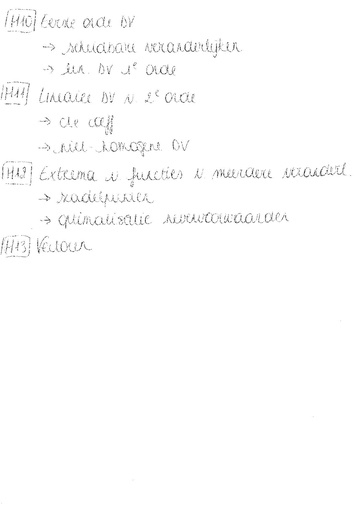 H10 Eerste orde DV
→ scheidbare veranderlijken
→ lin. DV 1e orde
H11 Lineaire DV v. 2e orde
→ cte coëff
→ niet-homogene DV
H12 Extrema v functies v meerdere veranderl.
→ zadelpunten
→ optimalisatie nevenvoorwaarden
H13 Vectoren